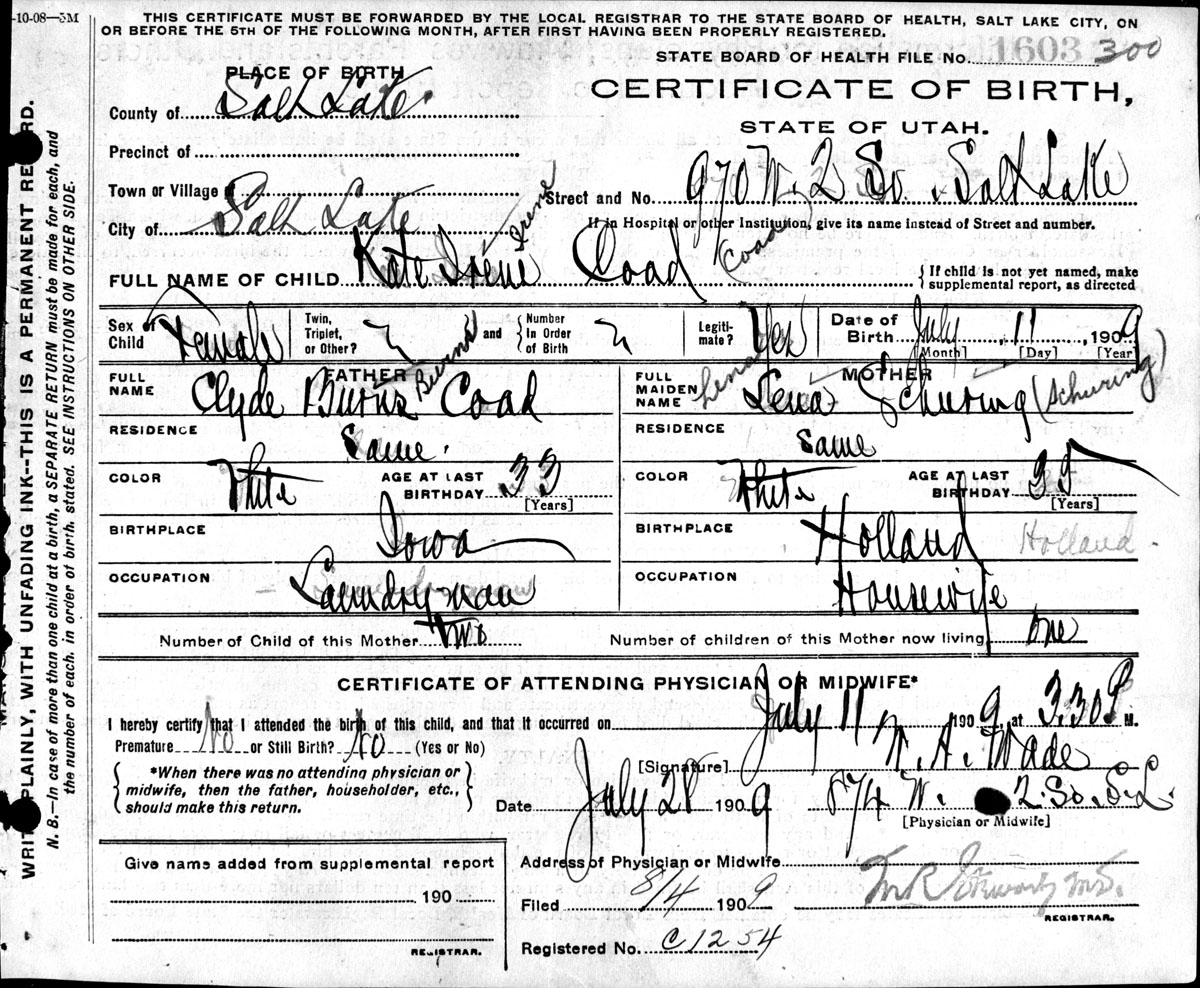 -10-08—5M
THIS CERTIFICATE MUST BE FORWARDED BY THE LOCAL REGISTRAR TO THE STATE BOARD OF HEALTH, SALT LAKE CITY, ON
OR BEFORE THE 5TH OF THE FOLLOWING MONTH, AFTER FIRST HAVING BEEN PROPERLY REGISTERED.
STATE BOARD OF HEALTH FILE No. 1603 300
PLACE OF BIRTH
CERTIFICATE OF BIRTH,
STATE OF UTAH.
County of Salt Lake
Precinct of
Town or Village of
Street and No. 970 W. 2 So. Salt Lake
City of Salt Lake
If in Hospital or other Institution, give its name instead of Street and number.
FULL NAME OF CHILD Kate Irene Irene Coad Coad
{ If child is not yet named, make
supplemental report, as directed
Sex of Child Female
Twin, Triplet, or Other? and { Number In Order of Birth
Legiti-mate? Yes
Date of Birth July 11, 1909
[Month] [Day] [Year]
FATHER
FULL NAME Clyde Burns Burns Coad
RESIDENCE Same.
COLOR White AGE AT LAST BIRTHDAY 33
[Years]
BIRTHPLACE Iowa
OCCUPATION Laundryman
MOTHER
FULL MAIDEN NAME Lena Lena Schuring (Schuring)
RESIDENCE Same
COLOR White AGE AT LAST BIRTHDAY 35
[Years]
BIRTHPLACE Holland Holland
OCCUPATION Housewife
Number of Child of this Mother two Number of children of this Mother now living one
CERTIFICATE OF ATTENDING PHYSICIAN OR MIDWIFE*
I hereby certify that I attended the birth of this child, and that it occurred on July 11 1909, at 3:30 P M.
Premature No or Still Birth? No (Yes or No)
[Signature] N. A. Wade
{ *When there was no attending physician or
midwife, then the father, householder, etc.,
should make this return. }
Date July 28 1909 874 W. 2. So. S. L.
[Physician or Midwife]
Give name added from supplemental report
190
REGISTRAR.
Address of Physician or Midwife
Filed 8/4 1909
M.D.
REGISTRAR.
Registered No. C1254
WRITE PLAINLY, WITH UNFADING INK--THIS IS A PERMANENT RECORD.
N. B.—In case of more than one child at a birth, a SEPARATE RETURN must be made for each, and
the number of each, in order of birth, stated. SEE INSTRUCTIONS ON OTHER SIDE.